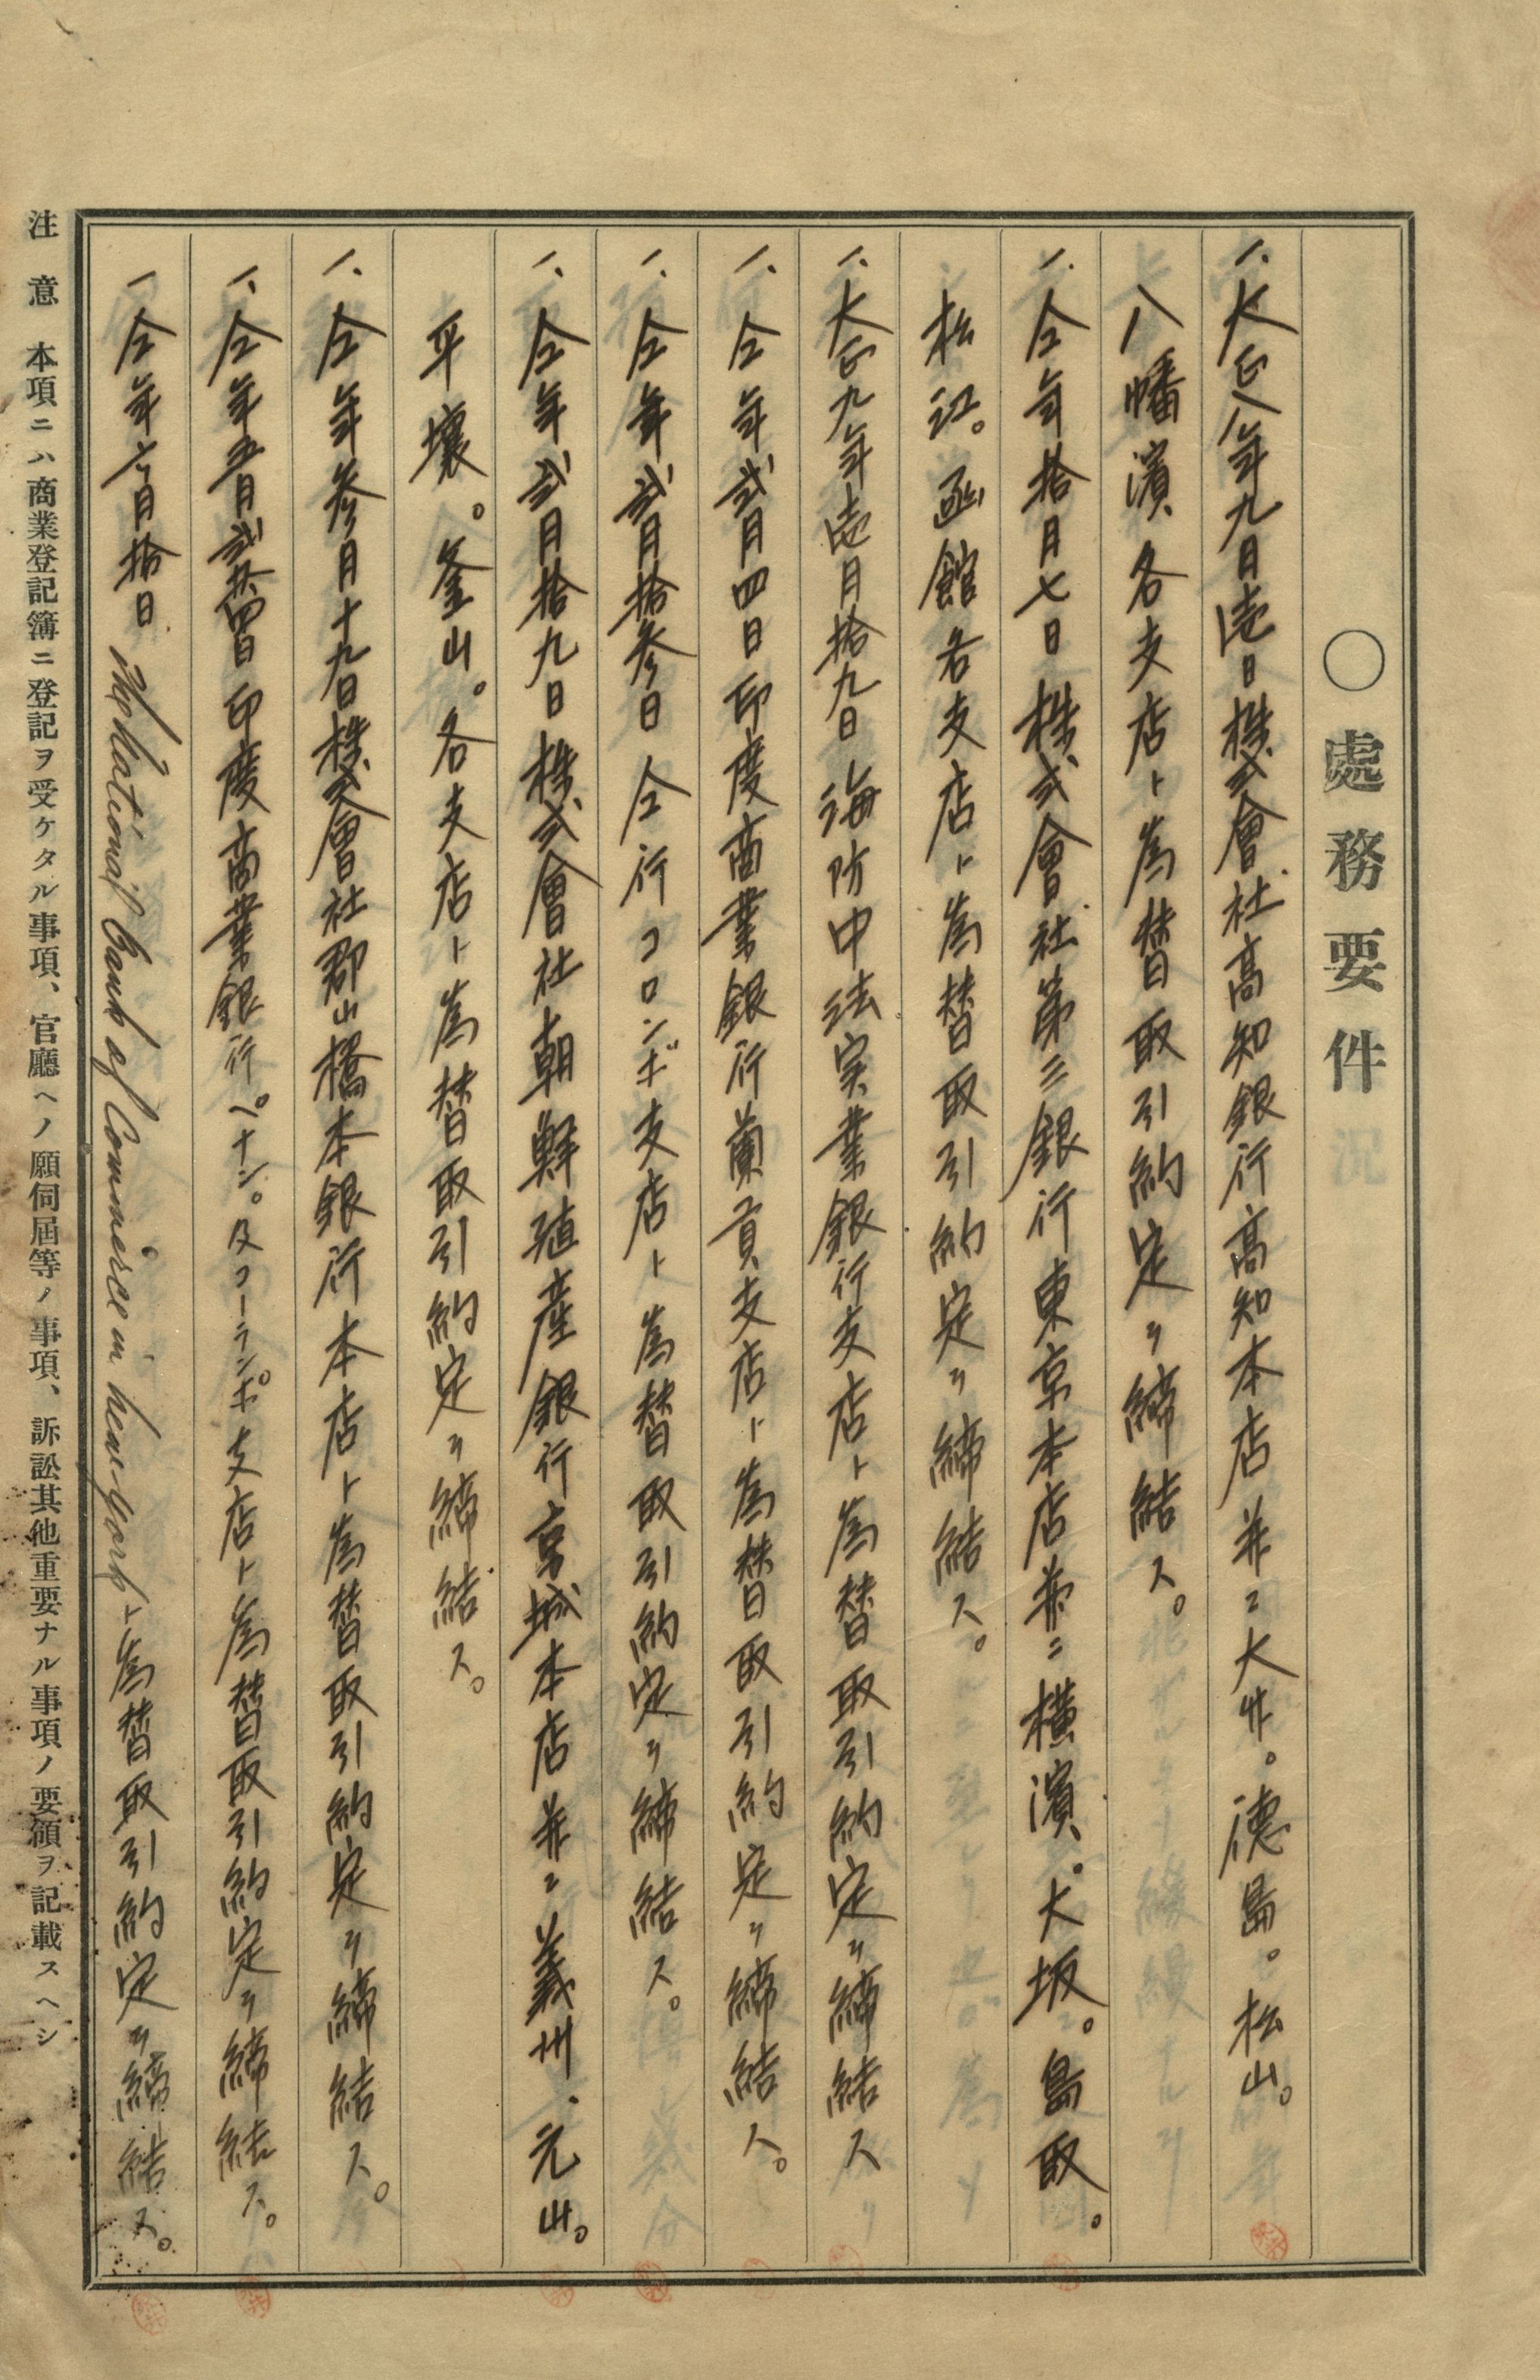 〇處務要件
一、大正八年九月壱日株式会社高知銀行高知本店并ニ大井。徳島。松山。
八幡濱各支店ト為替取引約定ヲ締結ス。
一、仝年拾月七日株式會社第三銀行東京本店并ニ横濱。大坂。鳥取。
松江。函館各支店ト為替取引約定ヲ締結ス。
一、大正九年壱月拾九日海防中法実業銀行支店ト為替取引約定ヲ締結ス
一、仝年弐月四日印度商業銀行蘭貢支店ト為替取引約定ヲ締結ス。
一、仝年弐月拾参日仝行コロンボ支店ト為替取引約定ヲ締結ス。
一、仝年弐月拾九日株式會社朝鮮殖産銀行京城本店并ニ義州、元山。
平壌。釜山。各支店ト為替取引約定ヲ締結ス。
一、仝年参月十九日株式會社郡山橋本銀行本店ト為替取引約定ヲ締結ス。
一、仝年五月弐拾四日印度商業銀行ペナン。及コーランポ支店ト為替取引約定ヲ締結ス。
一仝年六月拾日 The National Bank of Commerce in New-York ト為替取引約定ヲ締結ス。
注意 本項ニハ商業登記簿ニ登記ヲ受ケタル事項、官廳ヘノ願伺屆等ノ事項、訴訟其他重要ナル事項ノ要領ヲ記載スヘシ